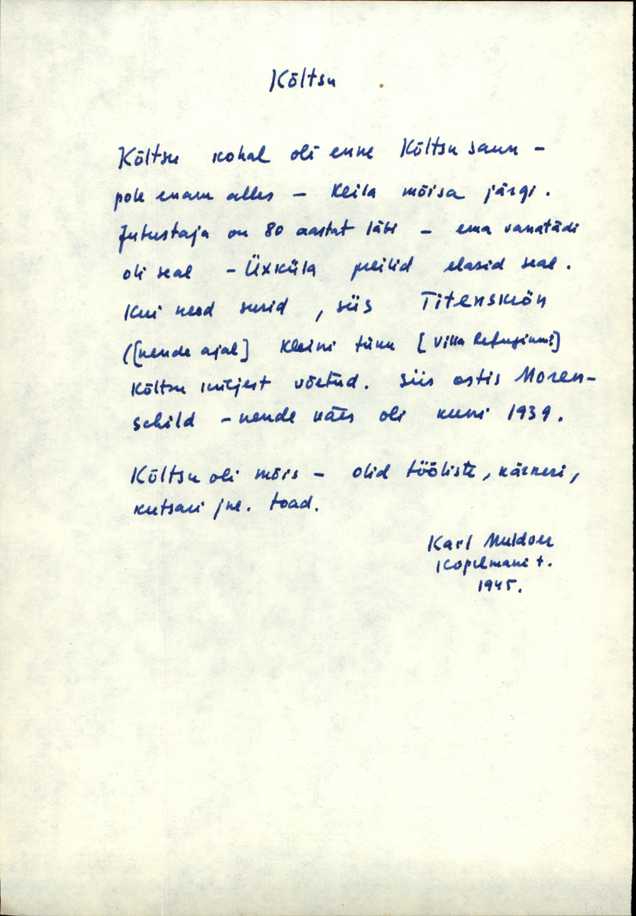 Kõltsu
Kõltsu kohal oli enne Kõltsu saun –
pole enam alles – Keila mõisa järgi.
Jutustaja on 80 aastat läbi – ema vanatädi
oli seal – Üxküla preilid elasid seal.
Kui need surid, siis Titenskiön
([nende ajal] Kleini tümu [Villa Refugiumi]
Kõltsu küljest võetud. Siis ostis Moren-
schild – nende käes oli kuni 1939.
Kõltsu oli mõis – olid tööliste, kärneri,
kutsari jne. toad.
Karl
Kopelmani t.
1945.